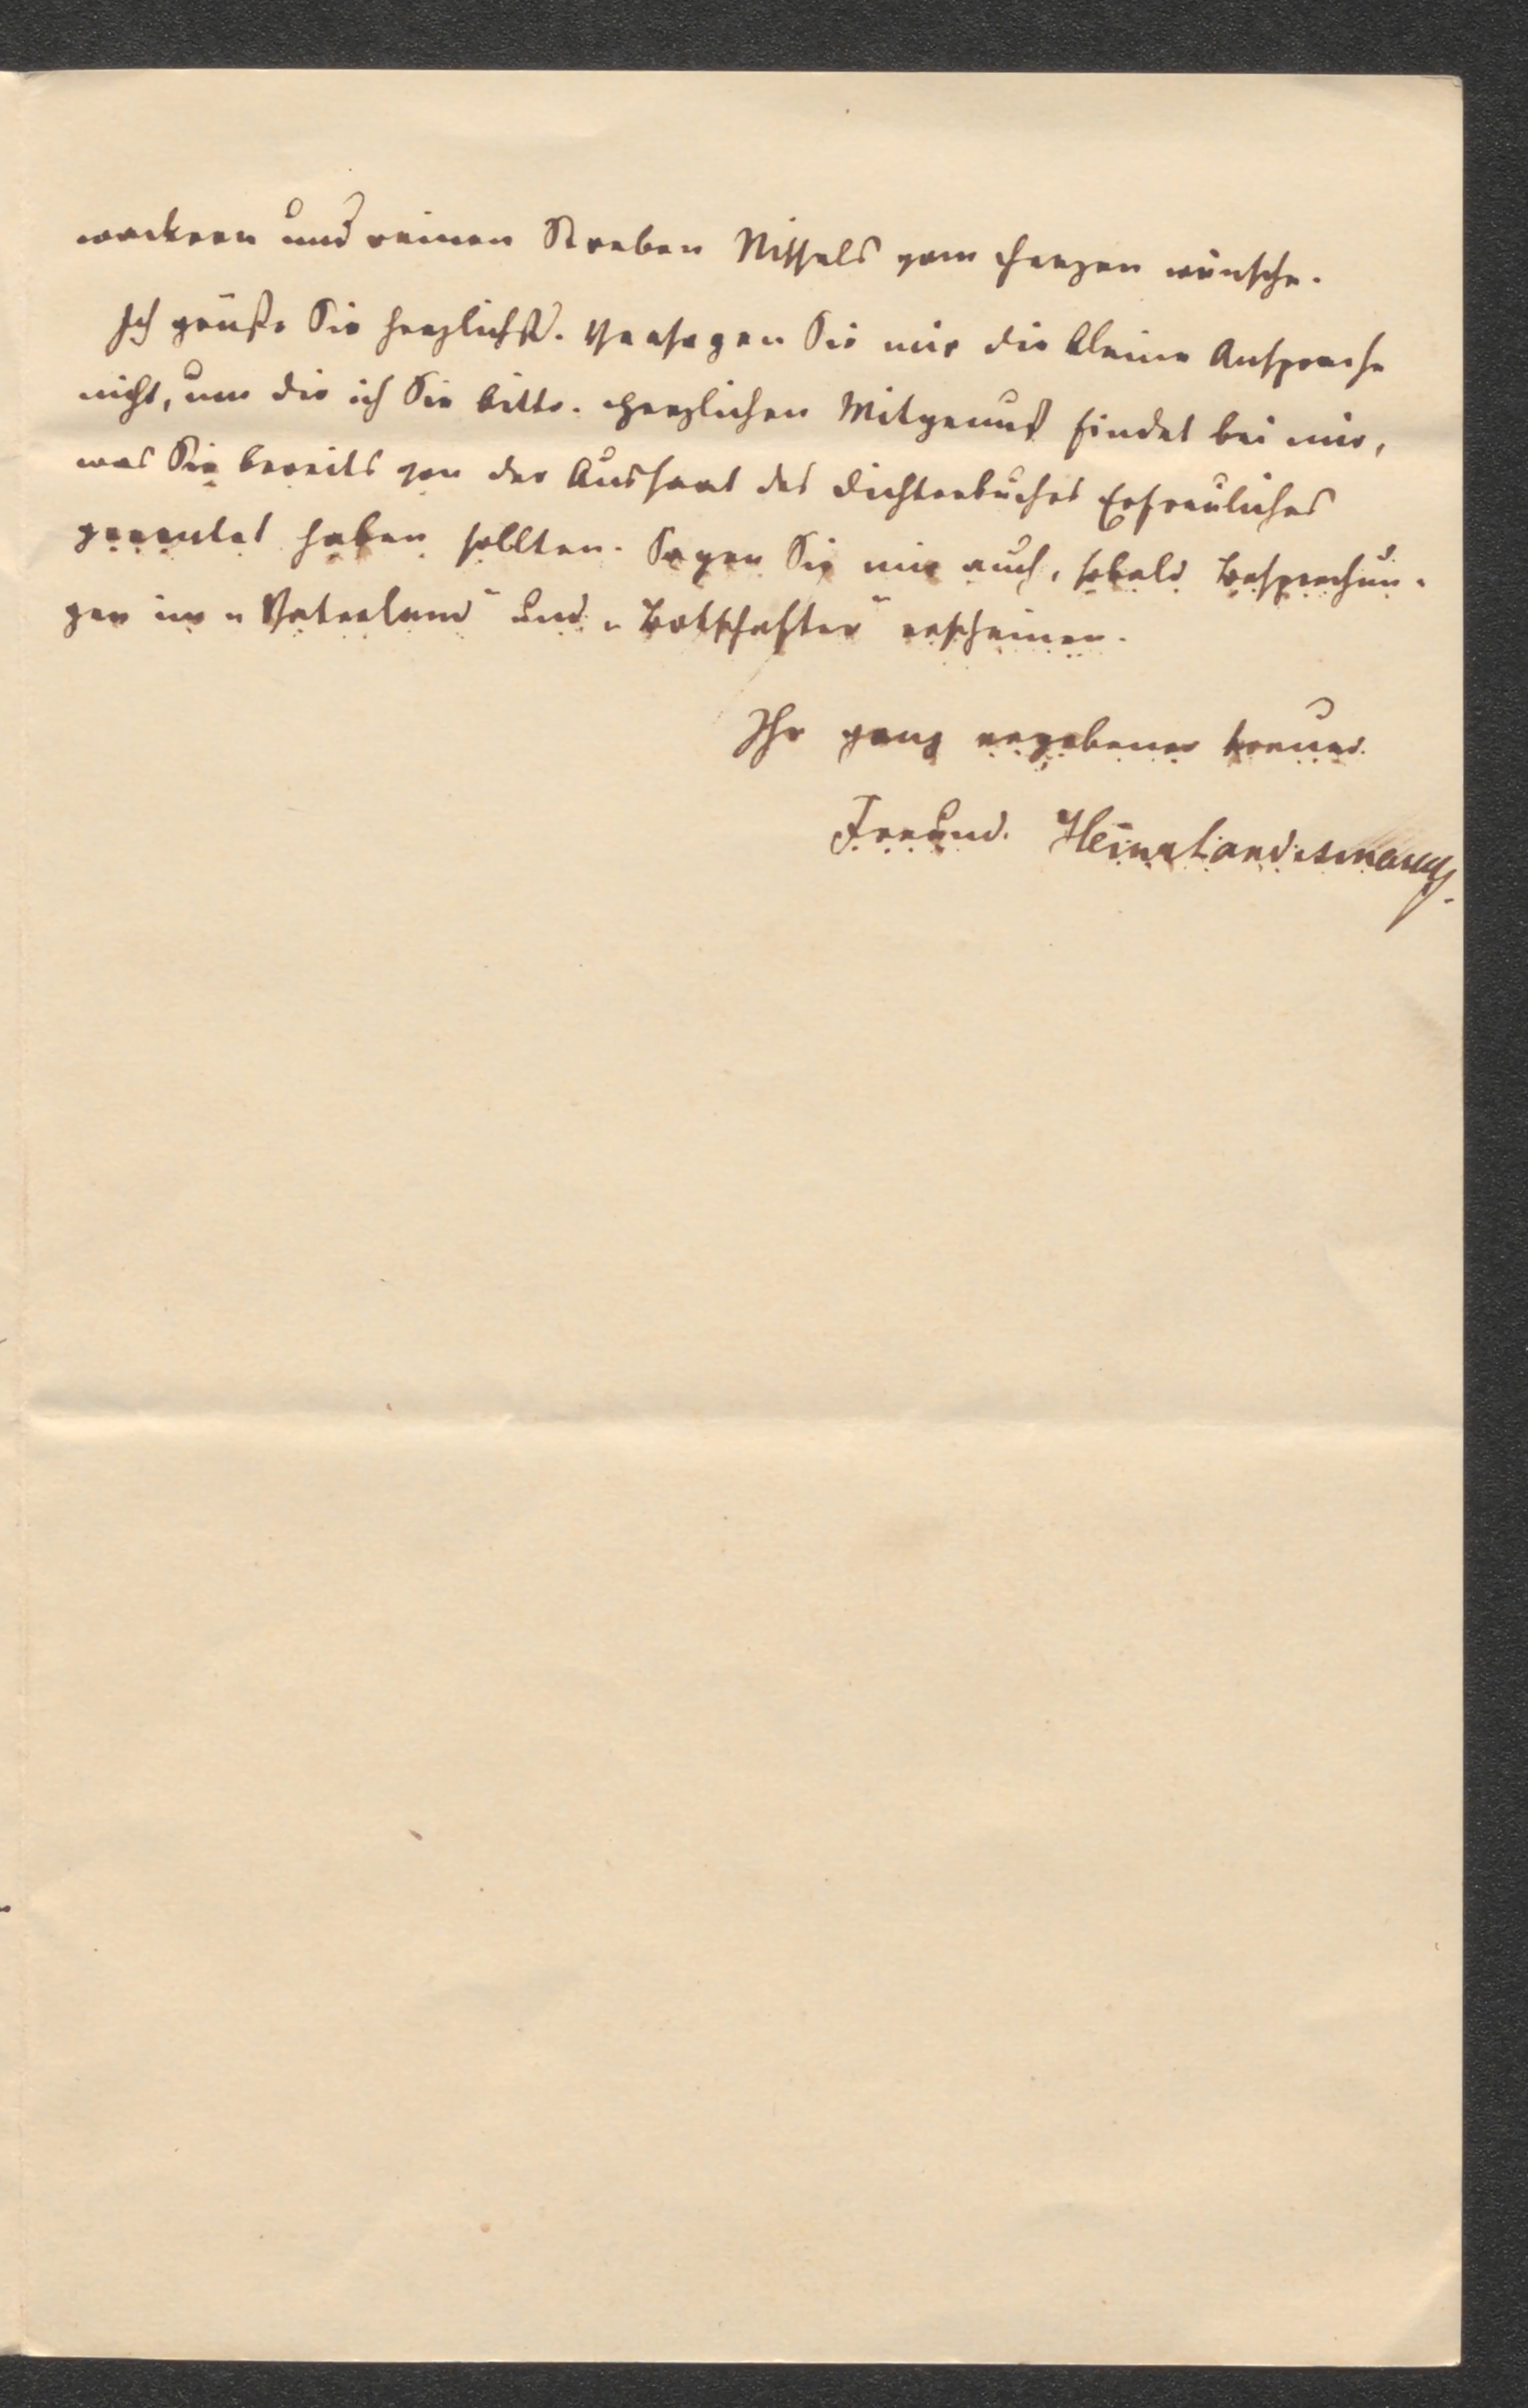 wackeren und reinen Streben Nissels vom Herzen wünsche.
Ich grüße Sie herzlichst. Versagen Sie mir die kleine Ansprache
nicht, um die ich Sie bitte. Herzlichen Mitgenuß findet bei mir,
was Sie bereits von der Aussaat des Dichterbuches Erfreuliches
geerntet haben sollten. Sagen Sie mir auch, sobald Besprechun-
gen im „Vaterland" und „Botschafter" erscheinen.
Ihr ganz ergebener treuer
Freund. Heinr Landesmann.